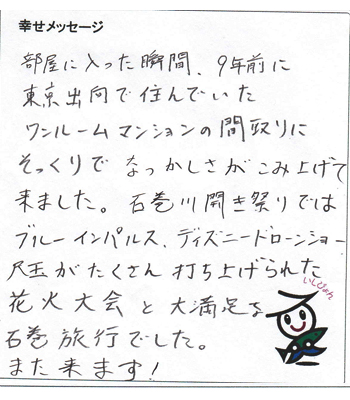 幸せメッセージ
部屋に入った瞬間、9年前に
東京出向で住んでいた
ワンルームマンションの間取りに
そっくりでなつかしさがこみ上げて
来ました。石巻川開き祭りでは
ブルーインパルス、ディズニードローンショー
尺玉がたくさん打ち上げられた
花火大会と大満足な
石巻旅行でした。
また来ます!
いしぴょん